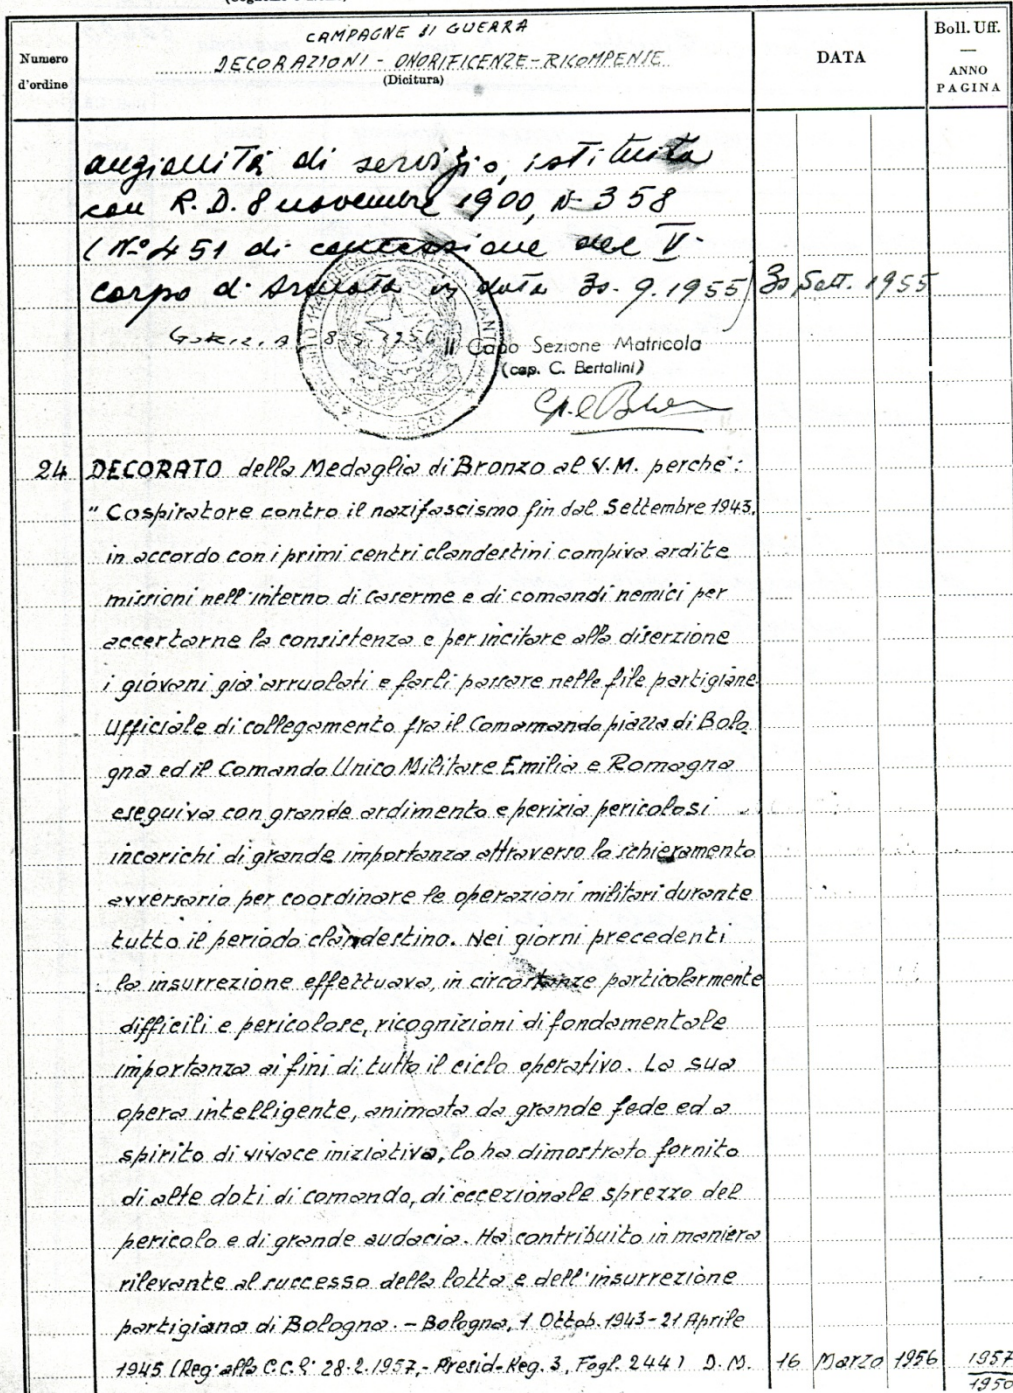 CAMPAGNE DI GUERRA
DECORAZIONI - ONORIFICENZE - RICOMPENSE
(Dicitura)
Numero
d'ordine
DATA
Boll. Uff.
—
ANNO
PAGINA
anzianità di servizio, istituita
con R.D. 8 novembre 1900, N- 358
(N° 451 di concessione del V-
corpo d'Armata in data 30-9-1955) 30 Sett. 1955
Gorizia 8-5-1956 Il Capo Sezione Matricola
(cap. C. Bertolini)
24 DECORATO della Medaglia di Bronzo al V.M. perchè:
" Cospiratore contro il nazifascismo fin dal Settembre 1943,
in accordo con i primi centri clandestini compiva ardite
missioni nell'interno di caserme e di comandi nemici per
accertarne la consistenza e per incitare alla diserzione
i giovani già arruolati e farli passare nelle file partigiane.
Ufficiale di collegamento fra il Comamando piazza di Bolo
gna ed il Comando Unico Militare Emilia e Romagna
eseguiva con grande ardimento e perizia pericolosi
incarichi di grande importanza attraverso lo schieramento
avversario per coordinare le operazioni militari durante
tutto il periodo clandestino. Nei giorni precedenti
la insurrezione effettuava, in circostanze particolarmente
difficili e pericolose, ricognizioni di fondamentale
importanza ai fini di tutto il ciclo operativo. La sua
opera intelligente, animata da grande fede ed a
spirito di vivace iniziativa, lo ha dimostrato fornito
di alte doti di comando, di eccezionale sprezzo del
pericolo e di grande audacia. Ha contribuito in maniera
rilevante al successo della lotta e dell'insurrezione
partigiana di Bologna. - Bologna, 1 Ottob. 1943 - 21 Aprile
1945 (Reg. alla C.C. il 28-2-1957, - Presid-Reg. 3, Fogl. 244) D.M. 16 Marzo 1956 1957
1950